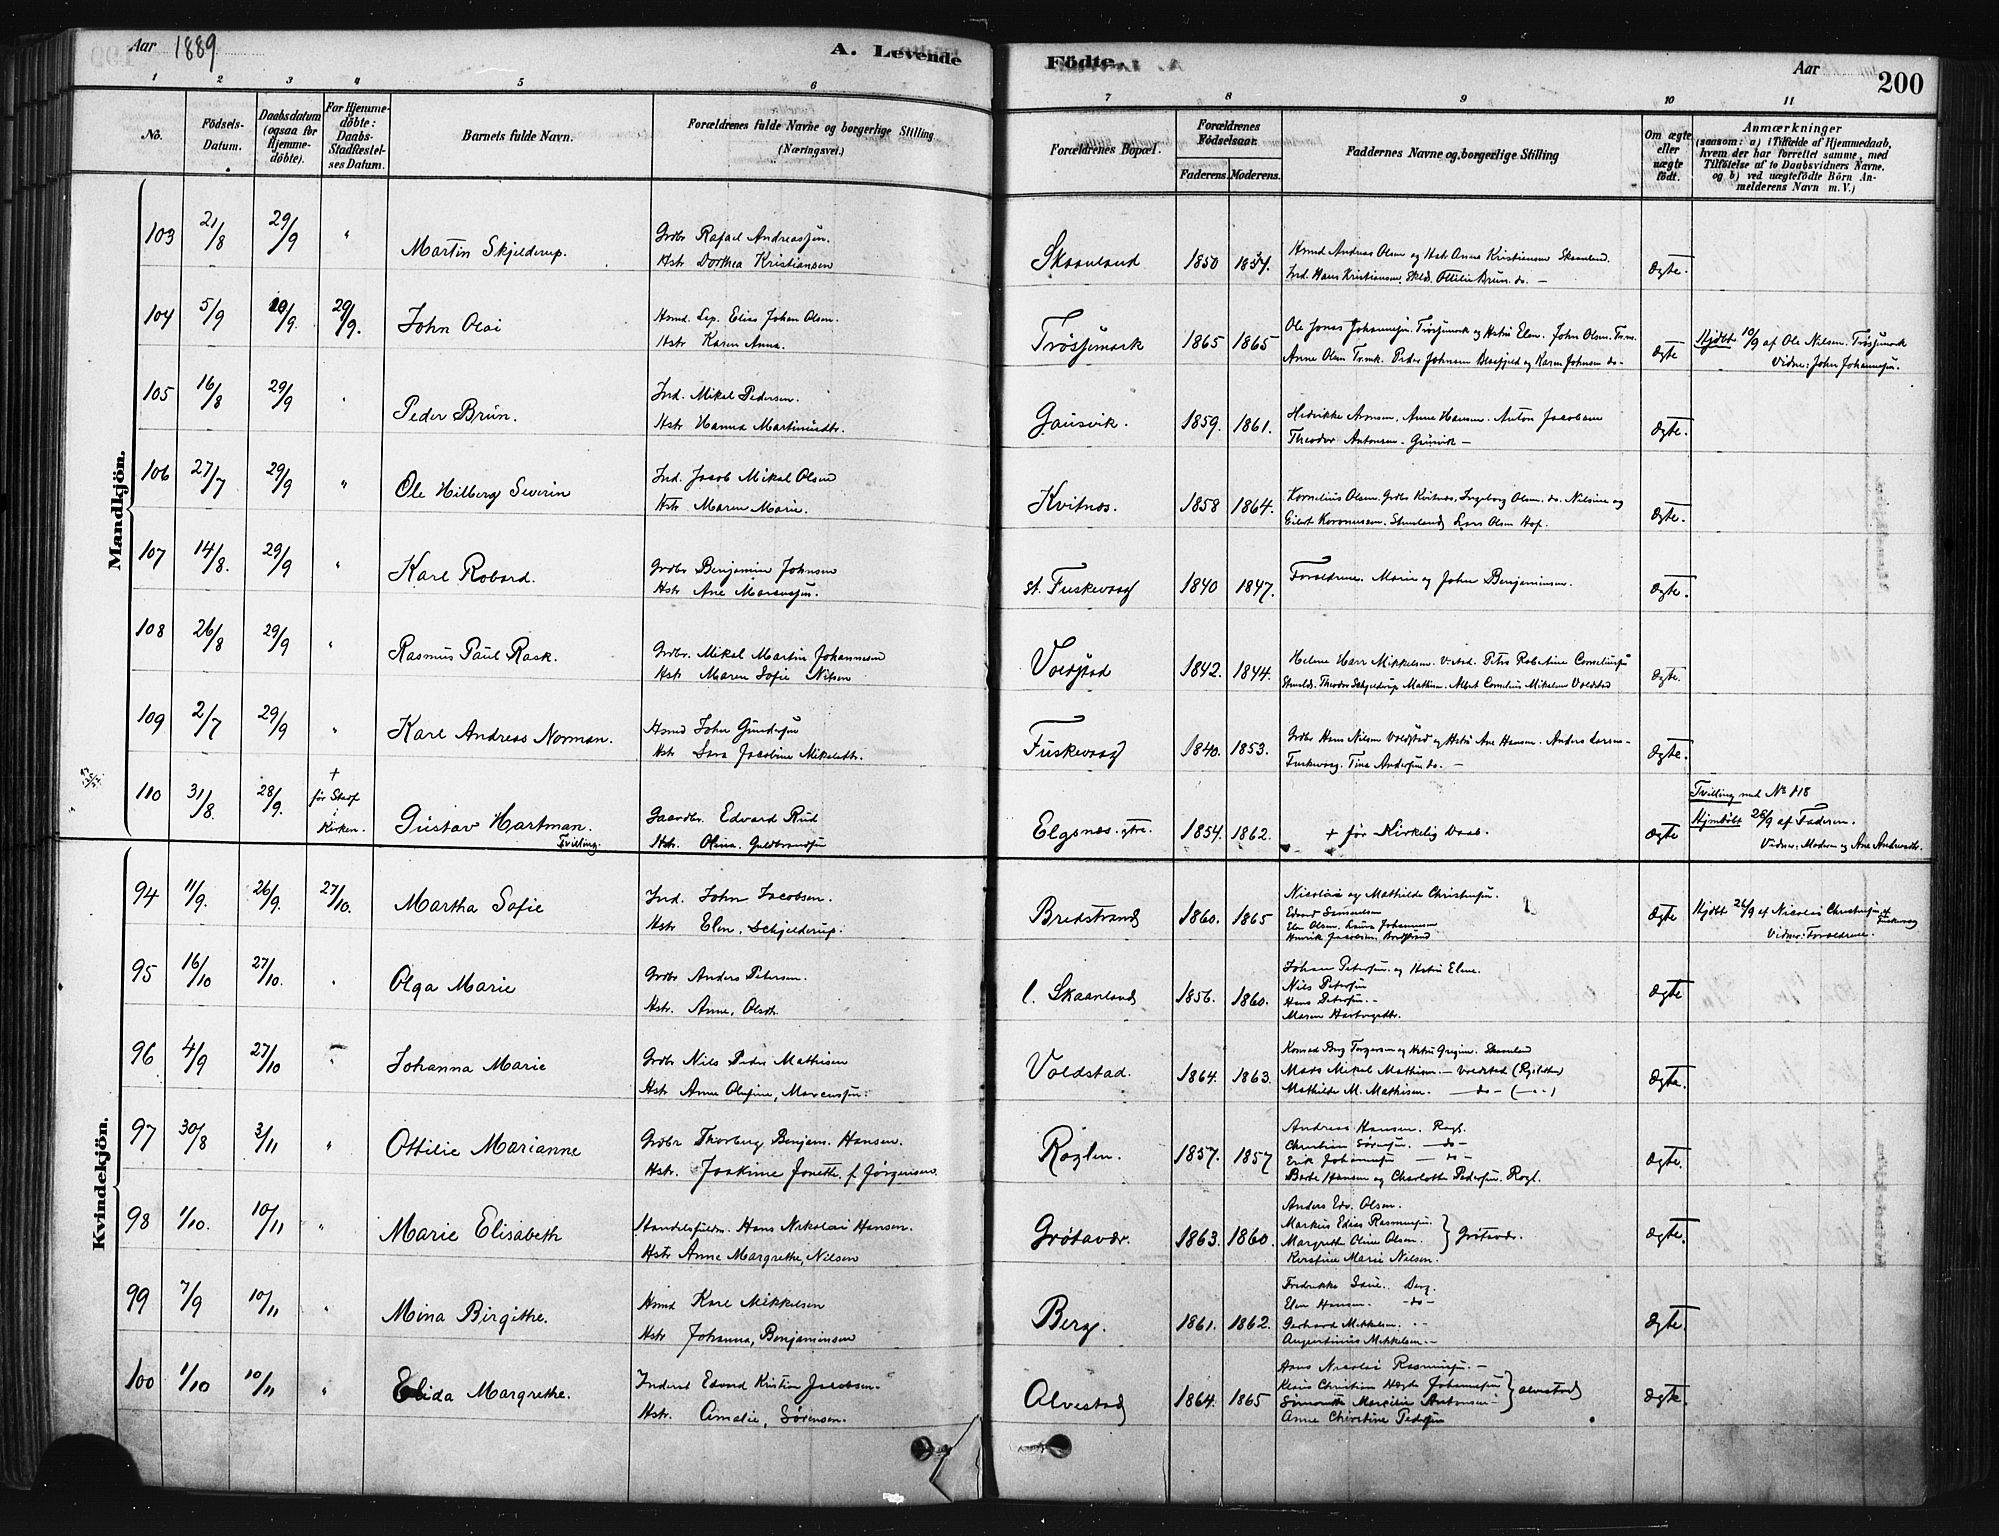 Aar 1889
A. Levende
Födte.
Aar
200
1 2 3 4 5 6 7 8 9 10 11
No.
Födsels-Datum.
Daabsdatum (ogsaa for Hjemmedöbte).
For Hjemmedöbte: Daabs-Stadfæstelses Datum.
Barnets fulde Navn.
Forældrenes fulde Navne og borgerlige Stilling (Næringsvei.)
Forældrenes Bopæl.
Forældrenes Födselsaar.
Faderens. Moderens.
Faddernes Navne og borgerlige Stilling
Om ægte eller uægte födt.
Anmærkninger
(saasom: a) i Tilfælde af Hjemmedaab, hvem der har forrettet samme, med Tilföielse af to Daabsvidners Navne. og b) ved uægtefödte Börn Anmelderens Navn m. V.)
Mandkjön.
103 21/8 29/9 " Martin Skjelderup. Grdbr Rafael Andreassen. Hstr Dorthea Kristiansen Skaanland 1850 1857. Hsmd Andreas Olsen og Hstr Anne Kristiansen Skaanland. Ind. Hans Kristiansen. Ottilie Brun. do. — Ægte.
104 5/9 10/9. 29/9. John Olai Hsmd. Lep. Elias Johan Olsen. Hstr Karen Anna. Trösjemark 1865 1865 Ole Jonas Johannesen. Trösjemark og Hstru Elen. John Olsen. Anne Olsen Peder Johnsen og Karen Johnsen do- Ægte Hjdbt 10/9 af Ole Nielsen. Trösjmork
Vidne: John Johannesen.
105 16/8 29/9 " Peder Brun. Ind. Mikal Pedersen. Hstr Hanna Martinusdtr. Gausvik. 1859. 1861. Hedvikke Arnesen. Anne Hansen. Anton Jacobsen Theodor Antonsen. — Ægte.
106 27/7 29/9 " Ole Hilberg Severin Ind. Jacob Mikal Olsen Hstr Maren Marie. Kvitnes. 1858 1864. Kornelius Olsen. Grdbr Kvitnes, Ingeborg Olsen. do. Nilsine og Eilert Lars Olsen Hof. Ægte.
107 14/8. 29/9 " Karl Robard. Grdbr Benjamin Johnsen Hstr Ane Marcusen. st. Fuskevaag 1840 1847. Foreldrene. Marie og John Benjaminsen. Ægte.
108 26/8 29/9 " Rasmus Paul Rask. Grdbr. Mikal Martin Johannesen Hstr Maren Sofie Nilsen Voldstad 1842. 1844. Helene Mikkelsen. Petra Robertine Corneliussen Theodor Schjelderup Mathisen. Albert Cornelius Mikalsen Voldstad Ægte.
109 2/7 29/9 " Karl Andreas Norman. Hsmd John Hstr Sara Jacobine Mikalsdtr. Fuskevaag 1840. 1853. Grdbr Hans Nilsen Voldstad og Hstru Ane Hansen. Anders Larsen- Fuskevaag. Tina Andersen do. — Ægte.
110 31/8. 28/9. + før Stadf i Kirken. Gustav Hartman. Tvilling. Gaardbr. Edvard Rud Hstr. Olina. Guldbrandsen Elgsnes. 1854. 1862. + før Kirkelig Daab. Ægte Tvilling med No 118
Hjmdöbt 26/9 af Faderen.
Vidner: Moderen og Ane Andreasdtr.
Kvindekjön.
94 11/9. 26/9. 27/10. Martha Sofie Ind. John Jacobsen. Hstr Elen. Schjelderup. Bredstrand 1860. 1865 Nicolai og Mathilde Christensen. Edvard Samuelsen Elen Olsen. Laura Johannesen Henrik Jacobsen. Bredstrand Ægte Hjdbt 26/9 af Nicolai Christensen af Fuskevaag
Vidner: Forældrene.
95 16/10 27/10. " Olga Marie Grdbr Anders Petersen. Hstr. Anne, Olsdtr. l. Skaanland 1856. 1860. Johan Petersen. og Hstru Eline. Nils Petersen Hans Petersen. - Maren Hartvigsdtr. Ægte
96 4/9 27/10 " Johanna Marie Grdbr Nils Peder Mathisen Hstr Anne Olufine, Marcussen. Voldstad. 1864. 1863. Konrad Berg Torgersen og Hstru Skaanland Mads Mikal Mathisen. — Voldstad Mathilde M. Mathisen. — do — Ægte.
97 30/8 3/11 " Ottilie Marianne Grdbr Thorberg Benjam. Hansen. Hstr. Joakime Jonette. f. Jørgensen. Röglen. 1857. 1857 Andreas Hansen. Rogl. Christian Sörensen. —do— Erik Johannesen —do— Berthe Hansen og Charlotte Pedersen. Rogl. Ægte.
98 1/10. 10/11 " Marie Elisabeth Handelsfuldm. Hans Nikolai Hansen. Hstr Anne Margrethe, Nilsen Grötavær. 1863. 1860. Anders Edv. Olsen. Markus Edias Rasmussen. Margrethe Oline Olsen. Kirstine Marie Nilsen. } Grötavær. Ægte.
99 7/9 10/11 " Mina Birgithe. Hsmd Karl Mikkelsen Hstr Johanna, Benjaminsen Berg. 1861. 1862. Fredrikke Berg. Elen Hansen. -do- Gerhard Mikkelsen. Augustinius Mikkelsen. - Ægte.
100 1/10 10/11 " Elida Margrethe. Inderst Edvard Kristian Jacobsen. Hstr. Amalie, Sörensen. Alvestad 1864. 1865 Hans Nicolai Rasmussen. - Klaus Christian Johannesen Antonsen Anne Christine Pedersen } Alvestad Ægte.